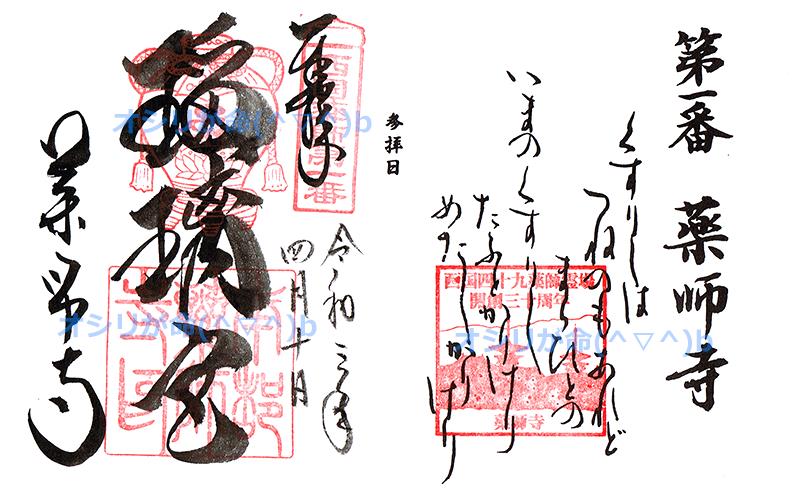 第一番 藥師寺
くすりしは
つねのもあれど
まらひとの
いまのくすりし
たふとかりけり
めだしかりけり
西国四十九薬師霊場
開創三十周年
薬師寺
オシリが命(^▽^)b
参拝日
奉拝
令和三年
四月十日
瑠璃
薬師寺
オシリが命(^▽^)b
オシリが命(^▽^)b